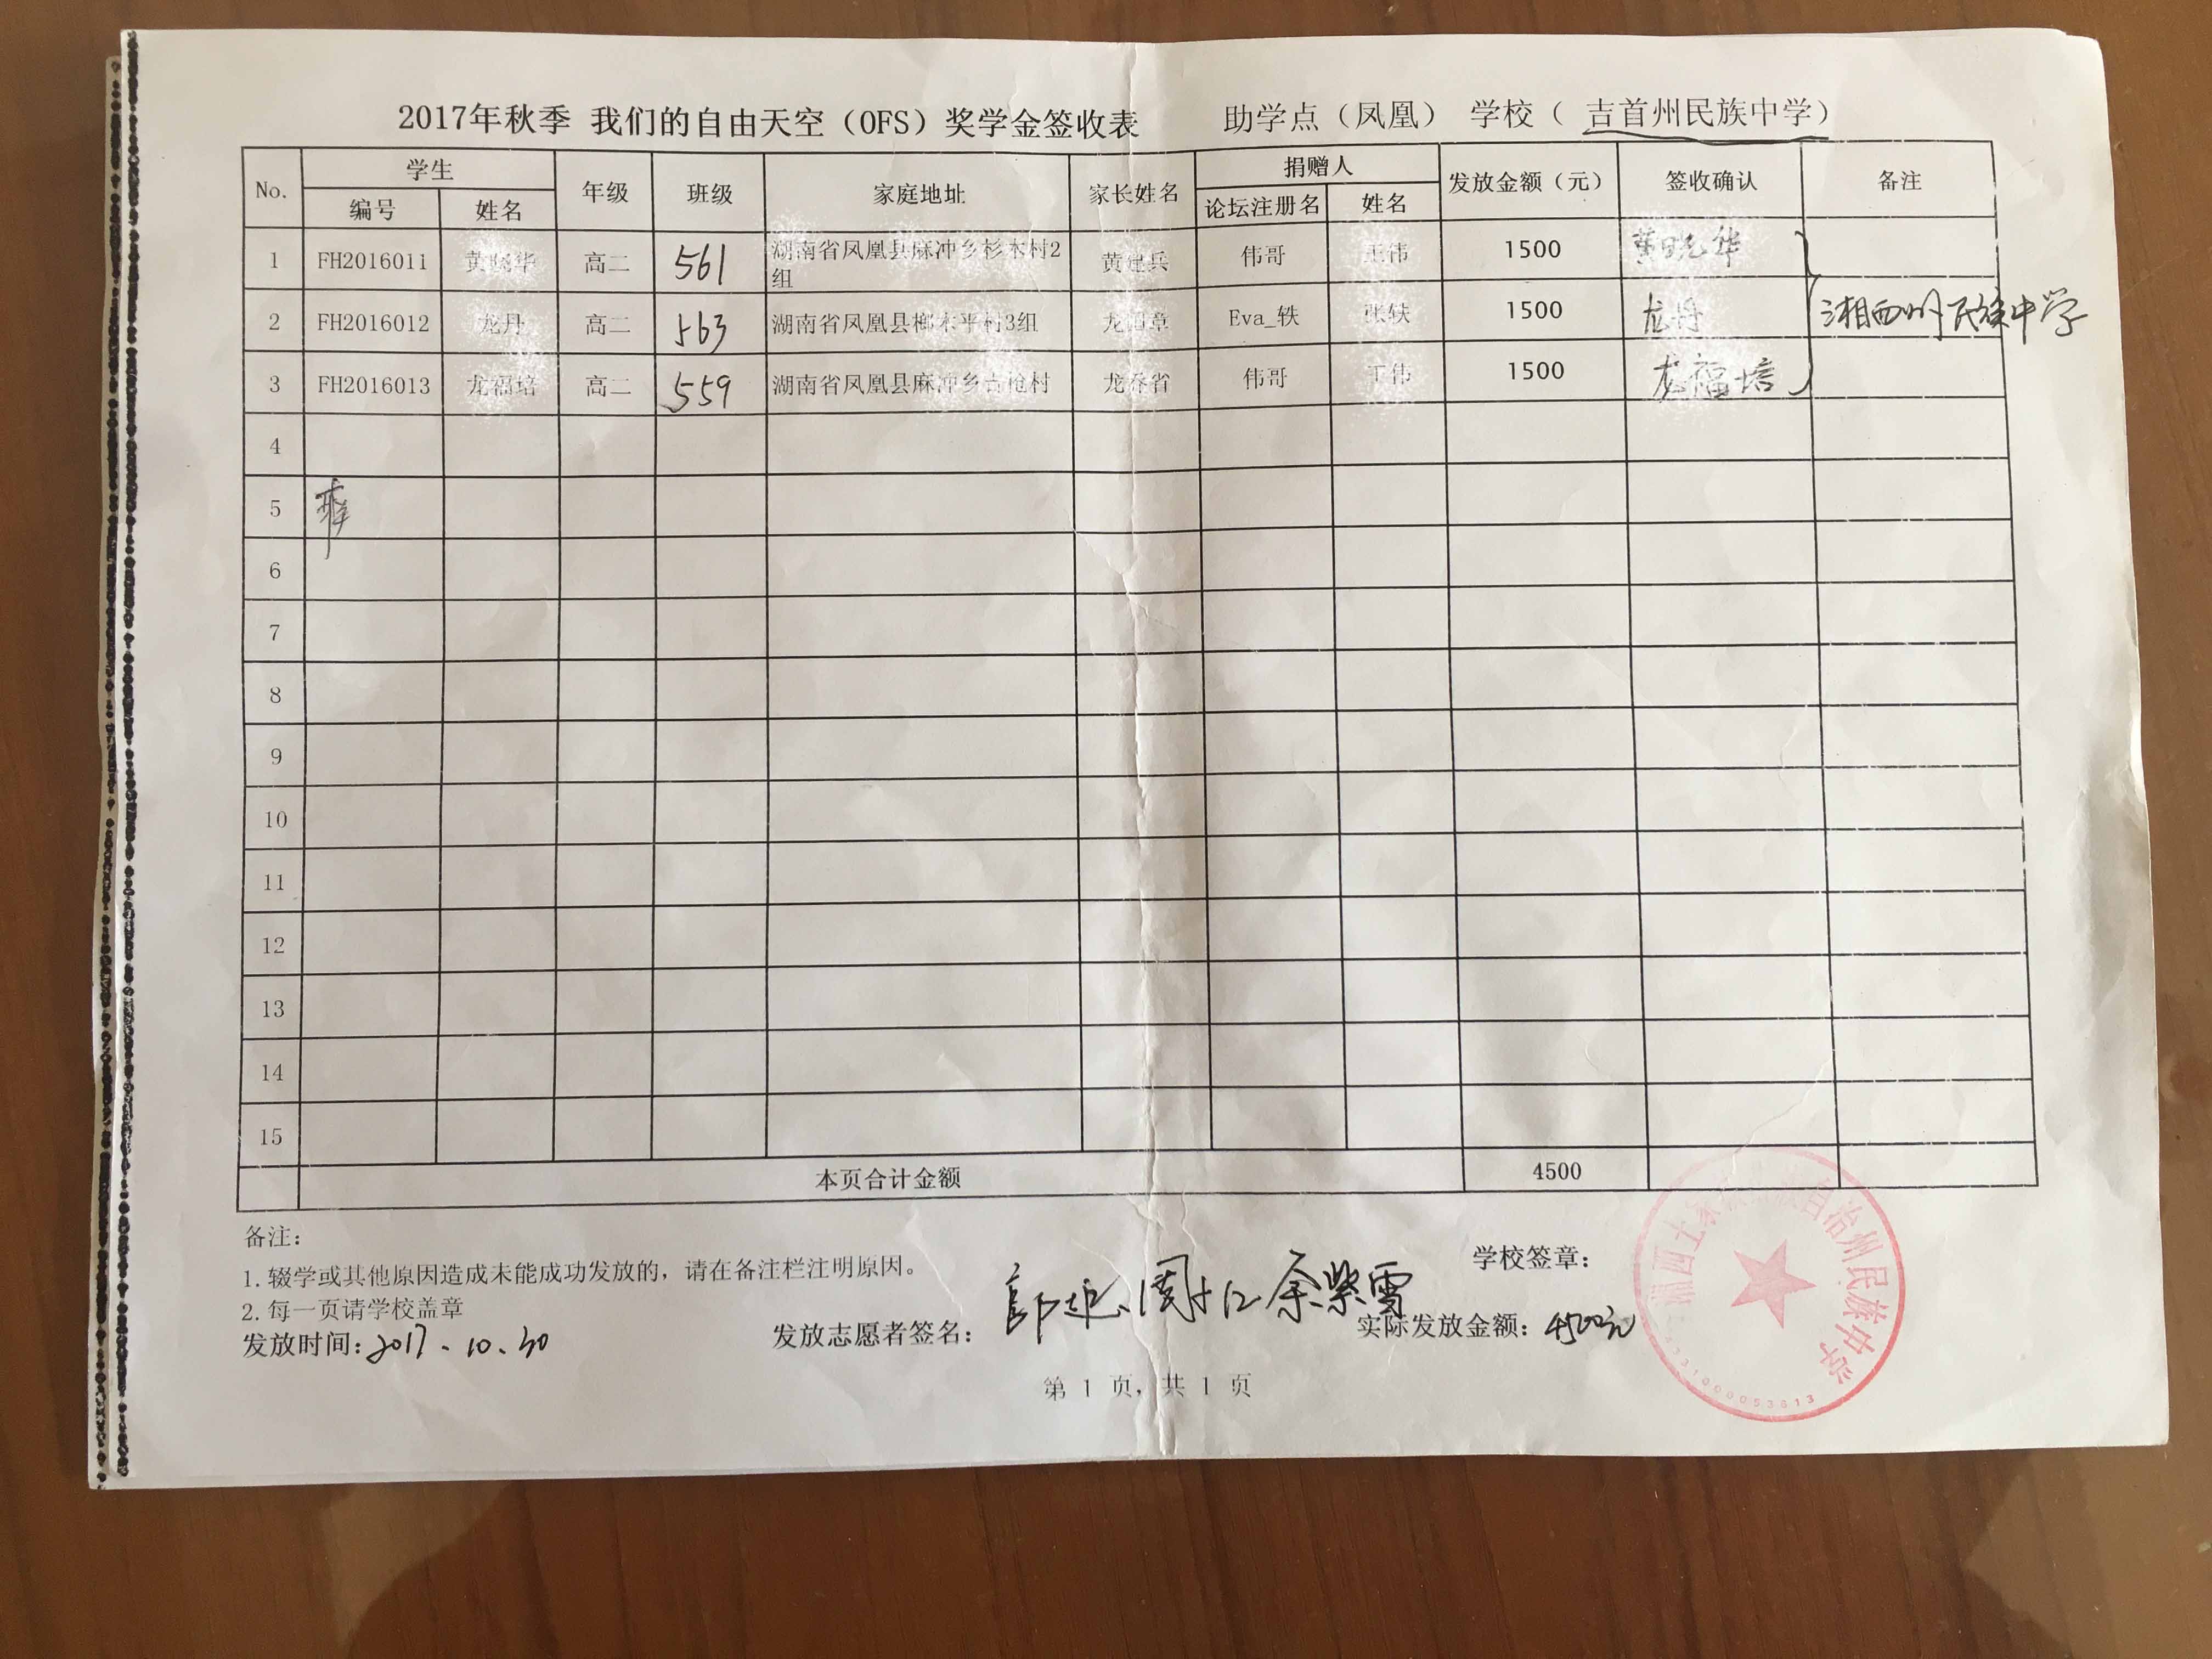 2017年秋季 我们的自由天空（OFS）奖学金签收表 助学点（凤凰） 学校（ 吉首州民族中学）
No. 学生 年级 班级 家庭地址 家长姓名 捐赠人 发放金额（元） 签收确认 备注
编号 姓名 论坛注册名 姓名
1 FH2016011 黄晓华 高二 561 湖南省凤凰县麻冲乡杉木村2组 黄建兵 伟哥 王伟 1500 黄晓华
2 FH2016012 龙丹 高二 563 湖南省凤凰县榔木平村3组 Eva_轶 张轶 1500 龙丹 湘西州民族中学
3 FH2016013 龙福培 高二 559 湖南省凤凰县麻冲乡 村 伟哥 王伟 1500 龙福培
4
5
6
7
8
9
10
11
12
13
14
15
本页合计金额 4500
备注：
1. 辍学或其他原因造成未能成功发放的，请在备注栏注明原因。
2. 每一页请学校盖章
学校签章：
发放时间：2017.10.30 发放志愿者签名： 余紫雪 实际发放金额：4500元
第 1 页，共 1 页
自治州民族中学